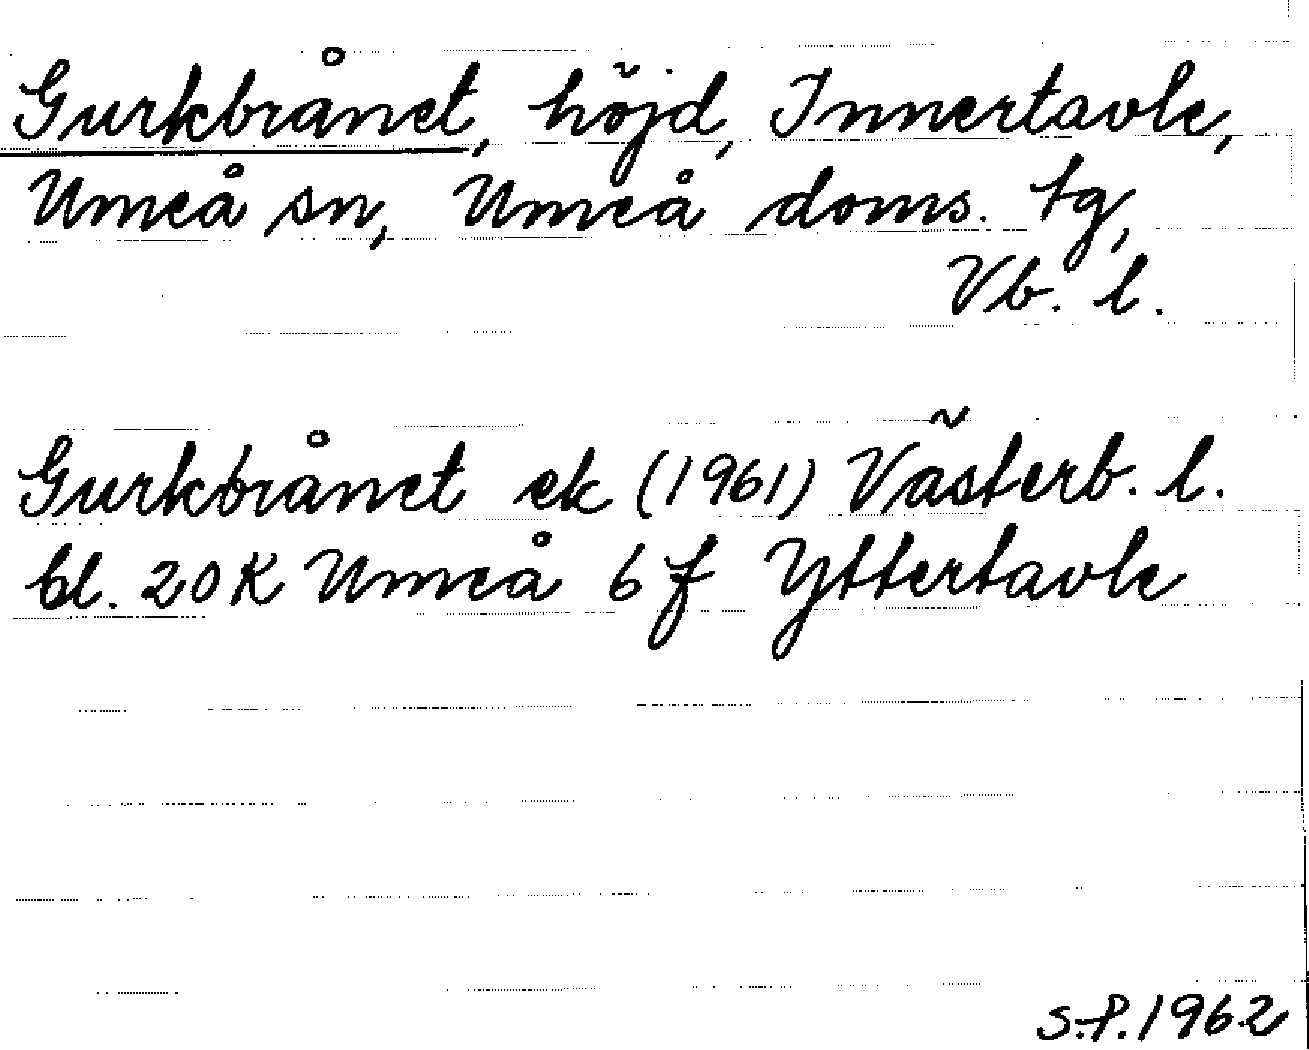 Gurkbrånet, höjd, Innertavle,
Umeå sn, Umeå doms. tg,
Vb. l.
Gurkbrånet ek (1961) Västerb. l.
bl. 20K Umeå 6f Yttertavle
S.P. 1962